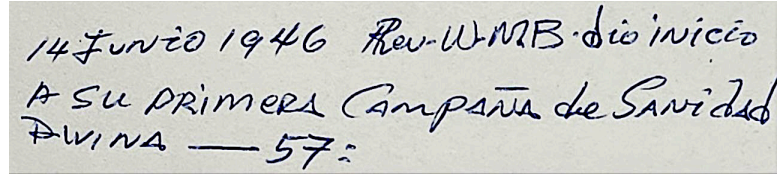 14 Junio 1946 Rev-W-MB-dio inicio
A SU PRIMERA CAMPAÑA de SANidad
DIVINA — 57: